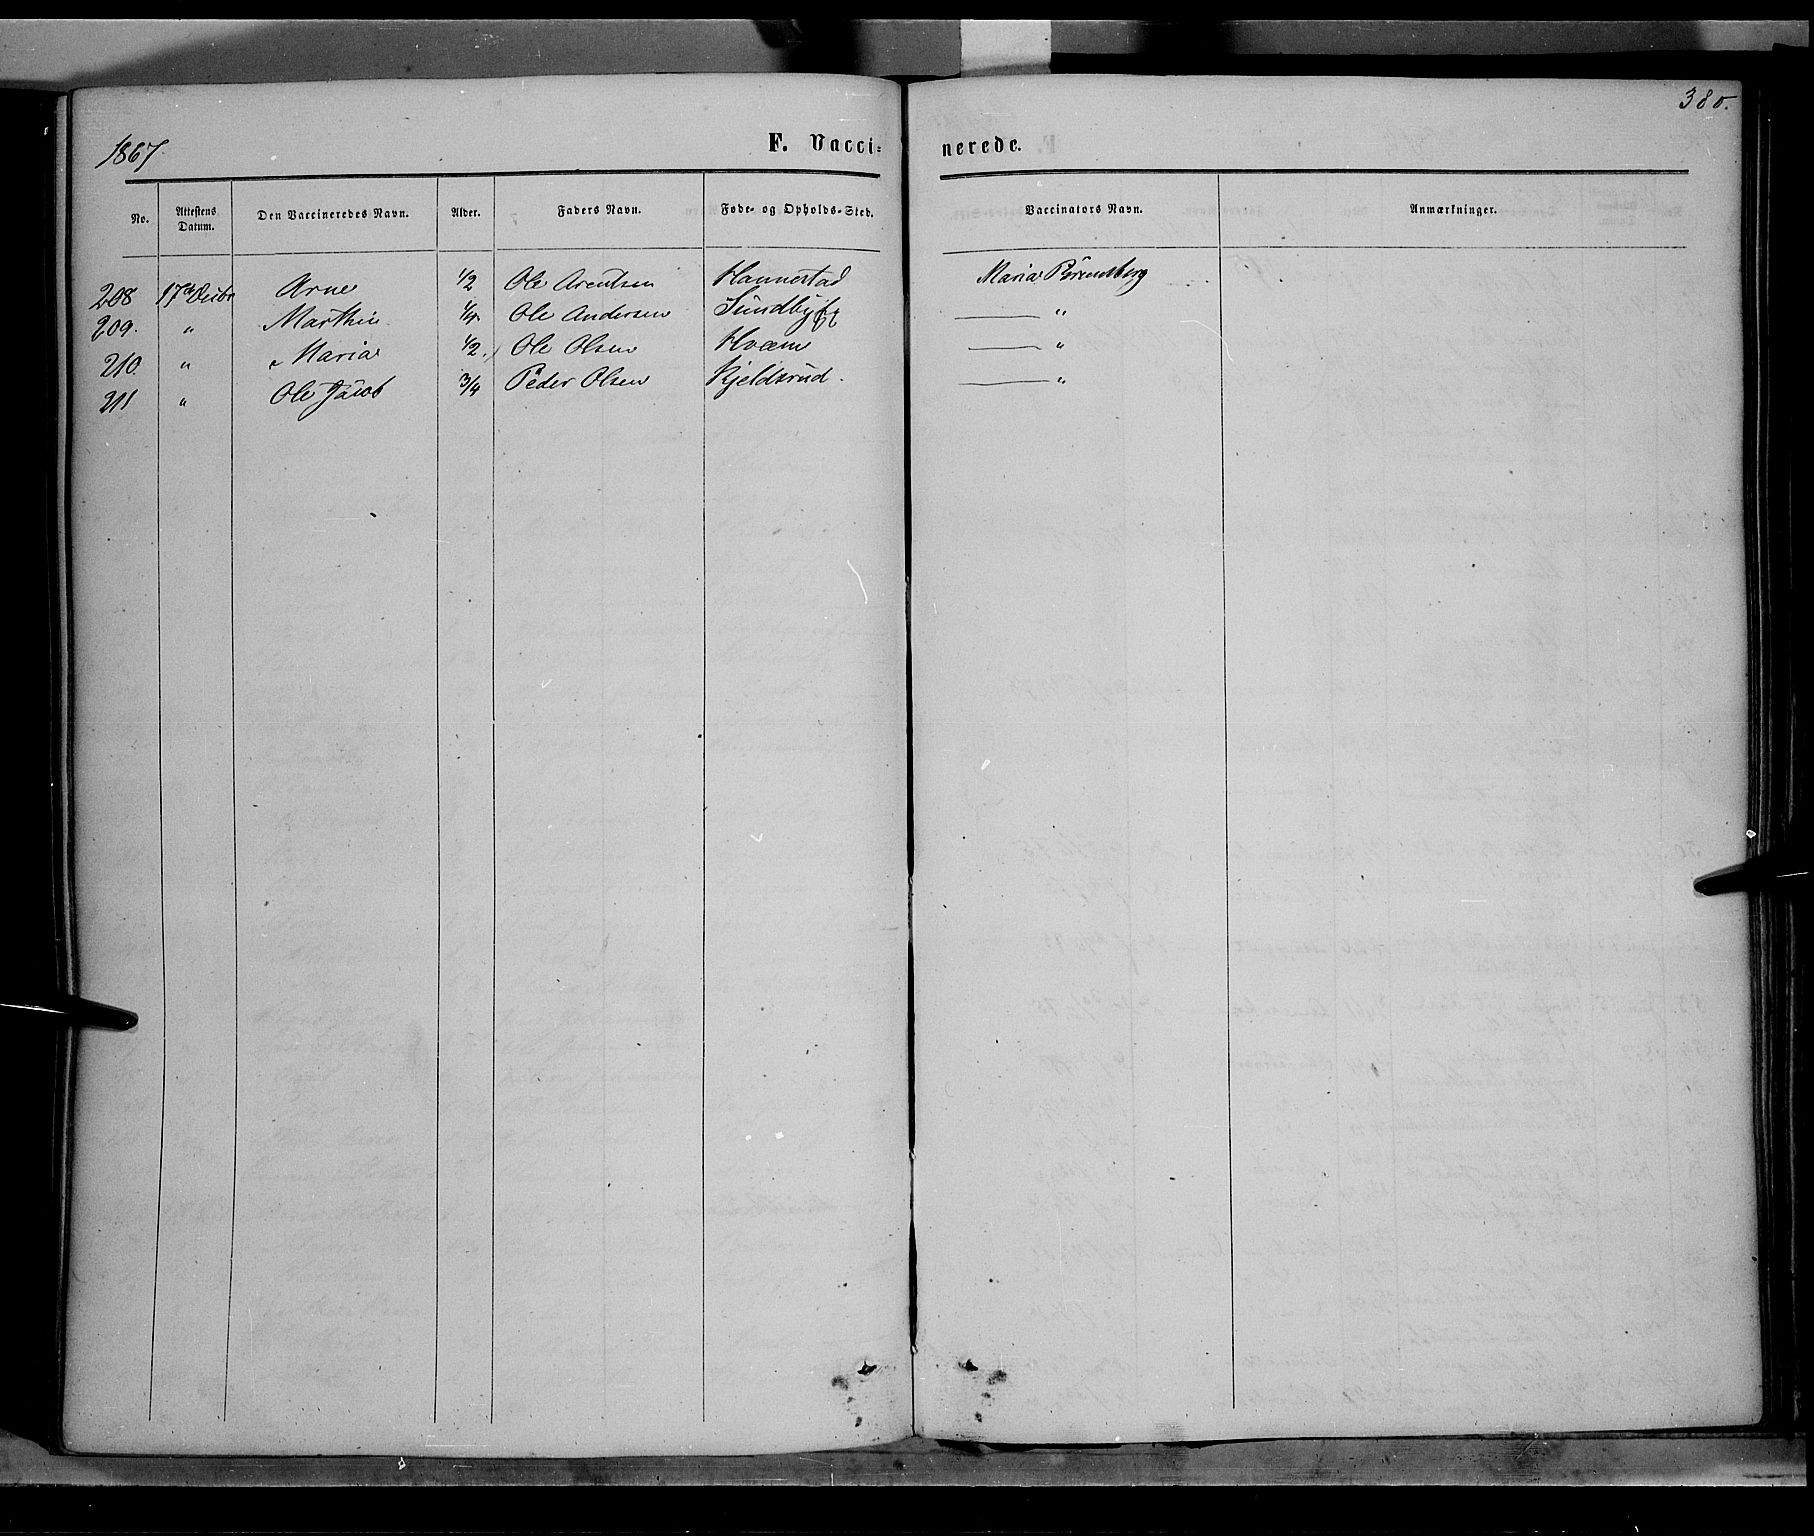 380.
1867.
F. Vacci-nerede.
No. Attestens Datum. Den Vaccineredes Navn. Alder. Faders Navn. Føde- og Opholds-Sted. Vaccinators Navn. Anmærkninger.
208 17de Arne 1/2 Ole Arentsen Hannestad Maria
209. " Marthin 1/4 Ole Andersen "
210. " Maria 1/2 Ole Olsen Hvæm "
211 " Ole Jacob 3/4 Peder Olsen Kjeldsrud. "